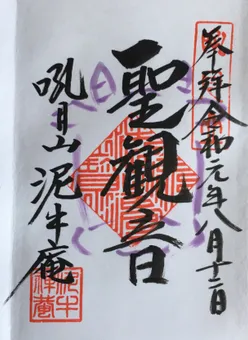 奉拝 令和元年八月十二日
聖観音
吼月山 泥牛庵